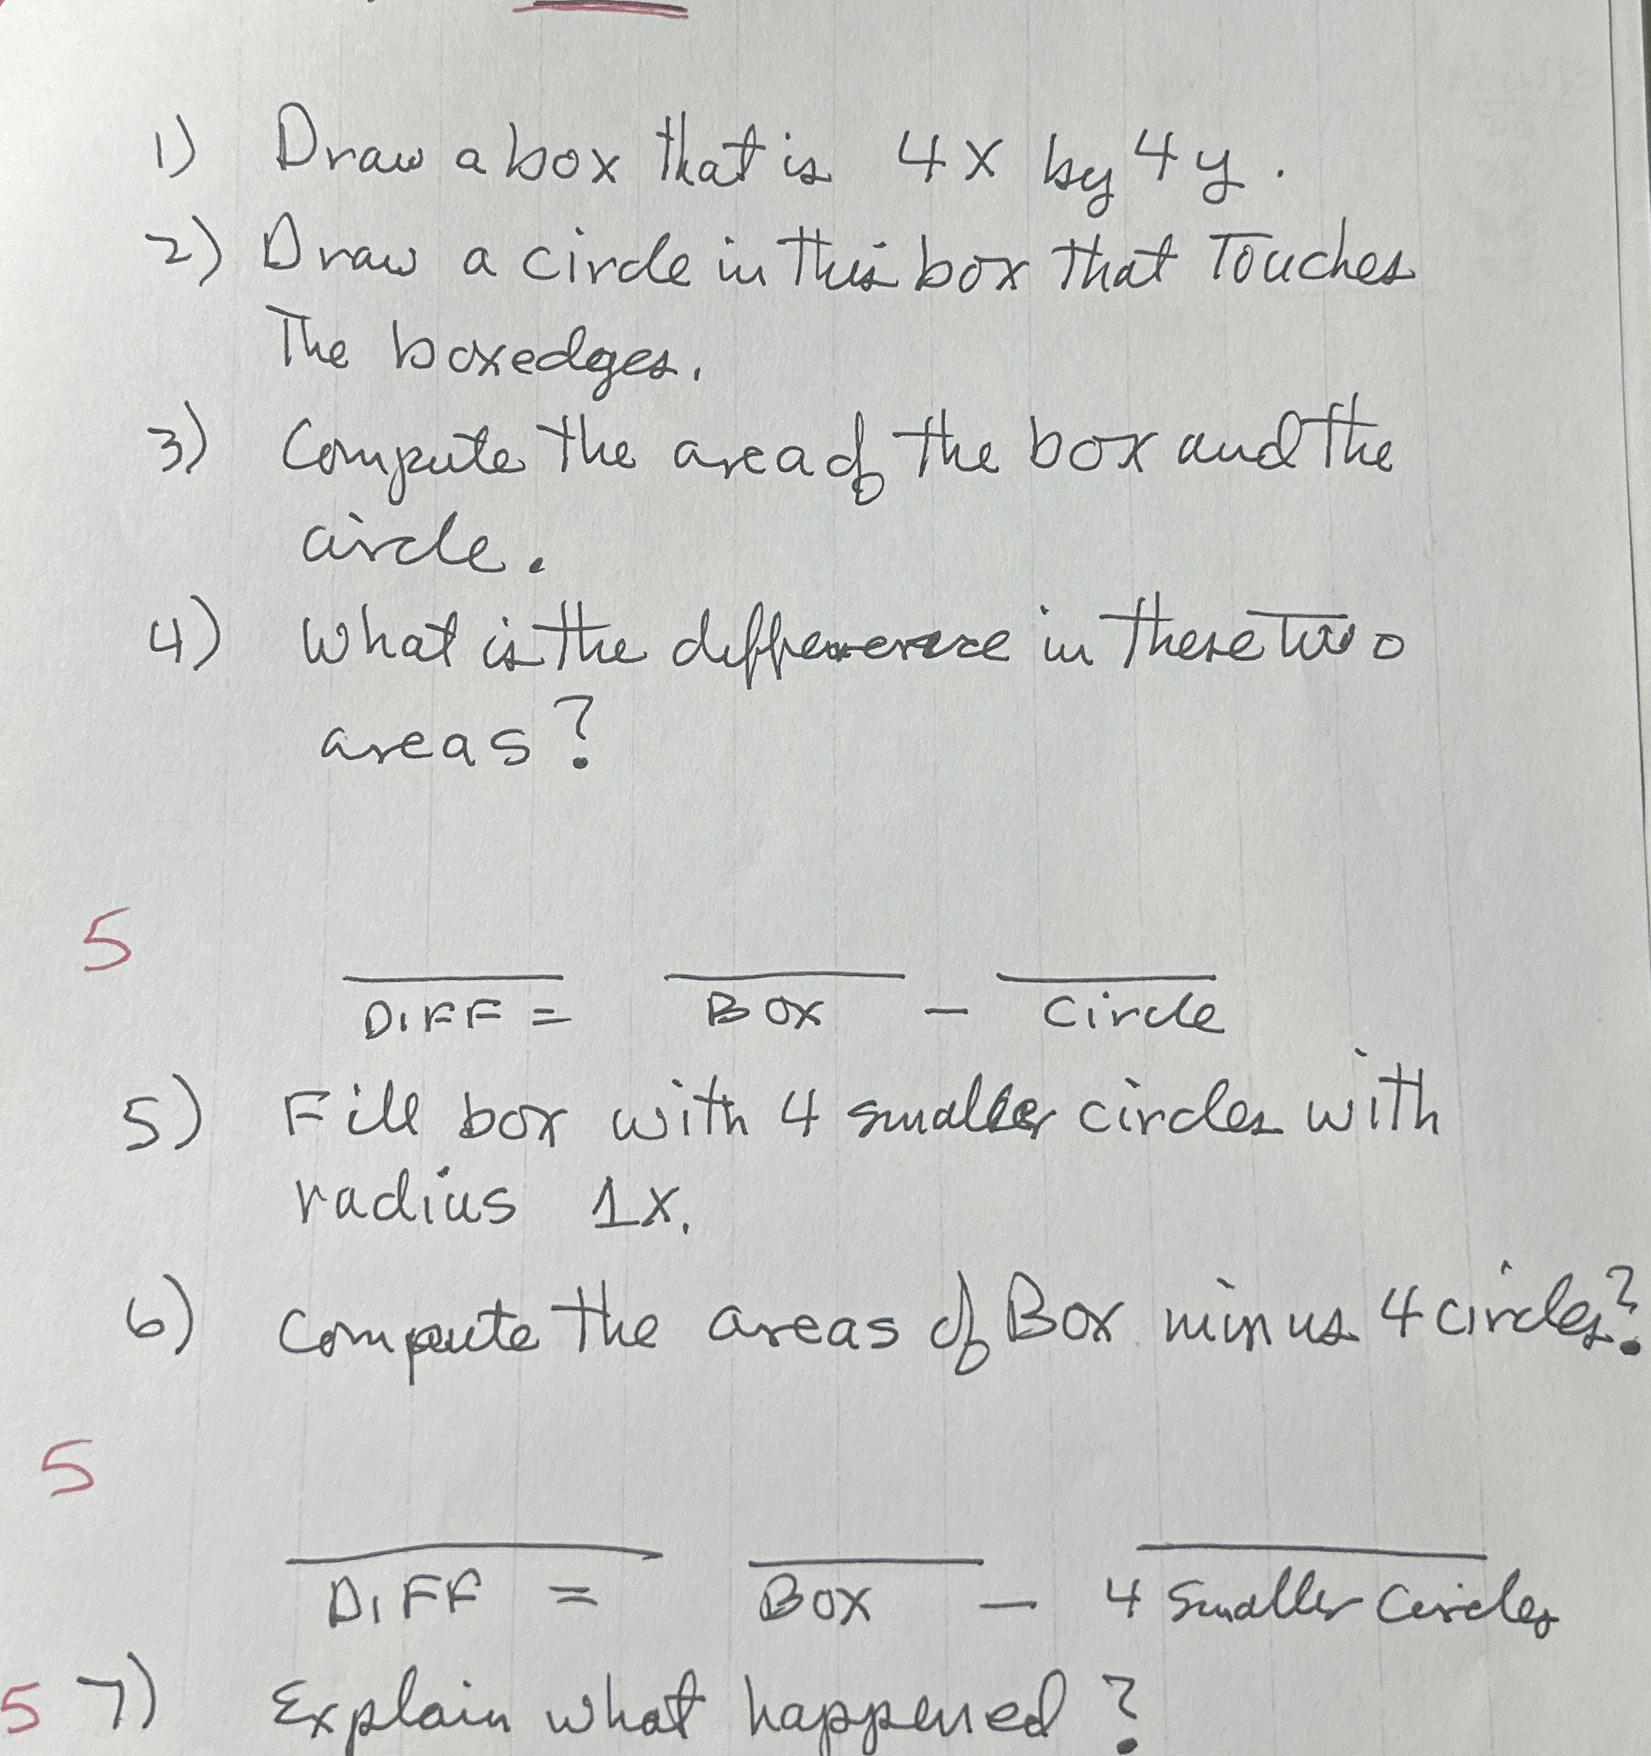 1) Draw a box that is 4x by 4y.
2) Draw a circle in this box that Touches
The box edges.
3) Compute the area of the box and the
circle.
4) What is the difference in these two
areas?
5
DIFF = BOX - Circle
5) Fill box with 4 smaller circles with
radius 1x.
6) Compute the areas of Box minus 4 circles?
5
DIFF = BOX - 4 Smaller Circles
5 7) Explain what happened?